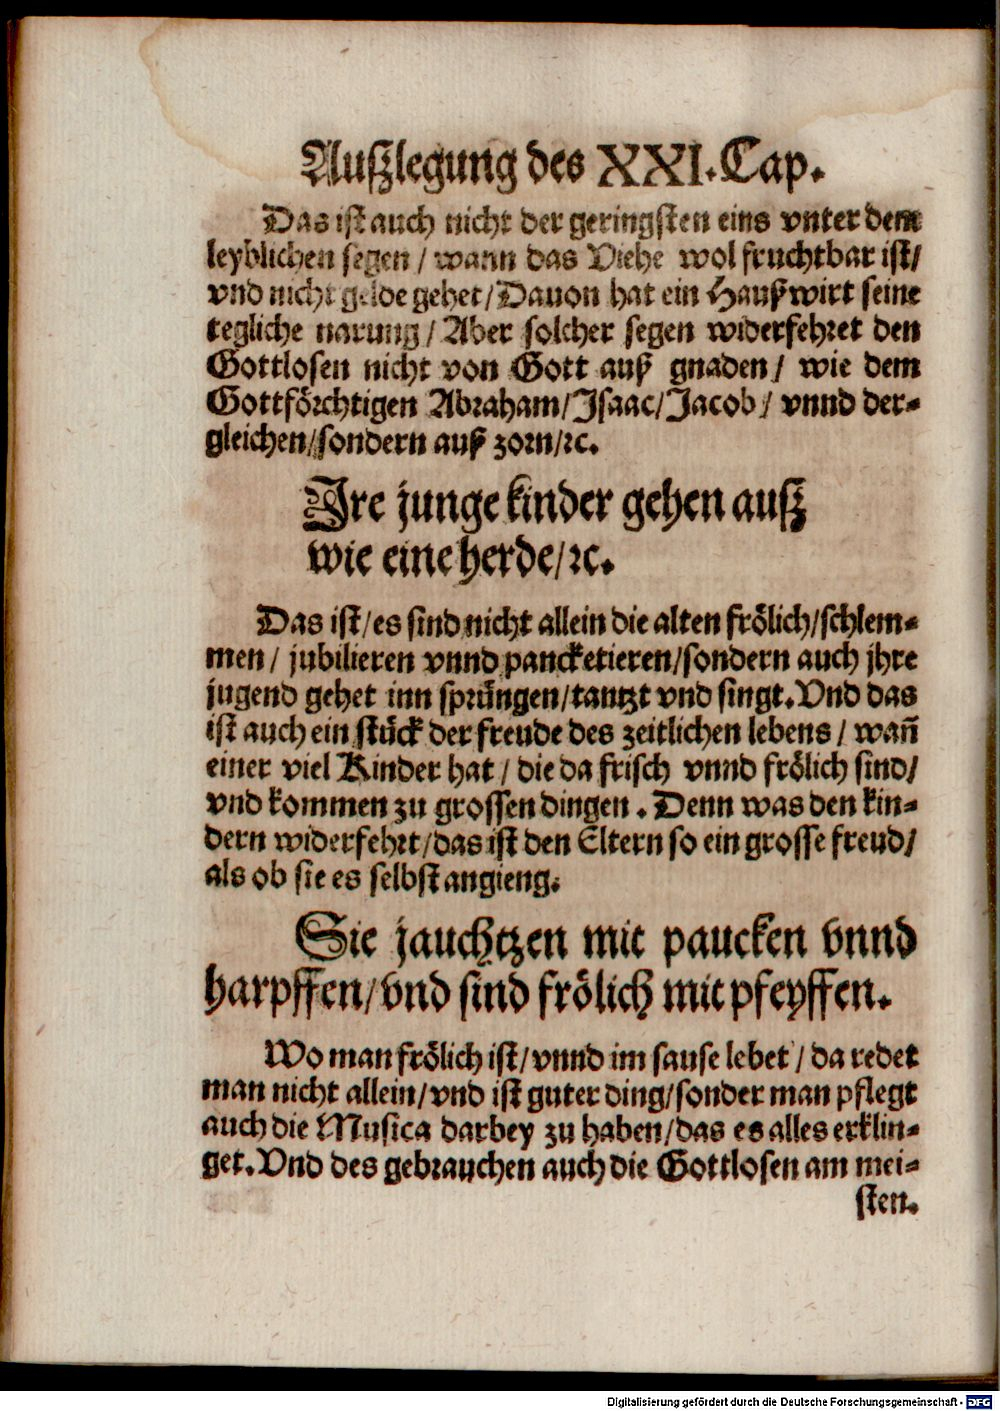 Außlegung des XXI. Cap.
Das ist auch nicht der geringsten eins vnter dem
leyblichen segen / wann das Viehe wol fruchtbar ist/
vnd nicht gelde gehet/Dauon hat ein Haußwirt seine
tegliche narung / Aber solcher segen widerfehret den
Gottlosen nicht von Gott auß gnaden / wie dem
Gottförchtigen Abraham/Isaac/Jacob / vnnd der-
gleichen/sondern auß zorn/ꝛc.
Ire junge kinder gehen auß
wie eine herde/ꝛc.
Das ist/es sind nicht allein die alten frölich/schlem-
men / jubilieren vnnd pancketieren/sondern auch jhre
jugend gehet inn sprüngen/tantzt vnd singt. Vnd das
ist auch ein stück der freude des zeitlichen lebens / wañ
einer viel Kinder hat / die da frisch vnnd frölich sind/
vnd kommen zu grossen dingen . Denn was den kin-
dern widerfehrt/das ist den Eltern so ein grosse freud/
als ob sie es selbst angieng.
Sie jauchtzen mit paucken vnnd
harpffen/vnd sind frölich mit pfeyffen.
Wo man frölich ist/vnnd im sause lebet / da redet
man nicht allein/vnd ist guter ding/sonder man pflegt
auch die Musica darbey zu haben/das es alles erklin-
get. Vnd des gebrauchen auch die Gottlosen am mei-
sten.
Digitalisierung gefördert durch die Deutsche Forschungsgemeinschaft - DFG